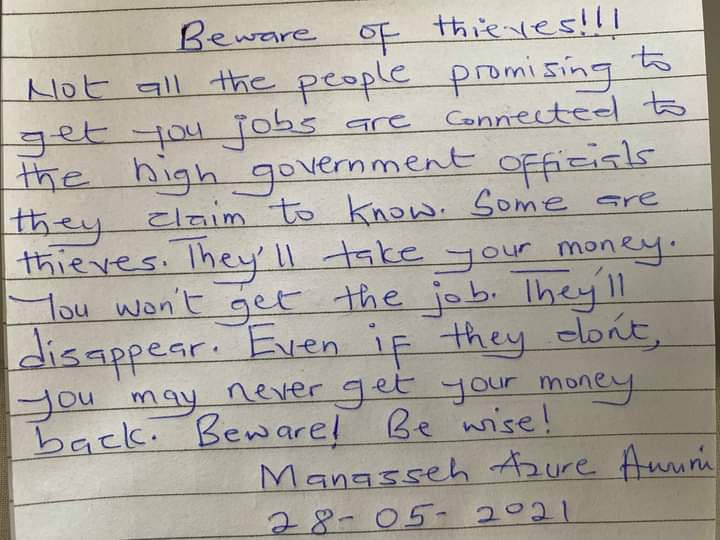 Beware of thieves!!!
Not all the people promising to
get you jobs are connected to
the high government officials
they claim to know. Some are
thieves. They'll take your money.
You won't get the job. They'll
disappear. Even if they don't,
you may never get your money
back. Beware! Be wise!
Manasseh Azure Awuni
28-05-2021